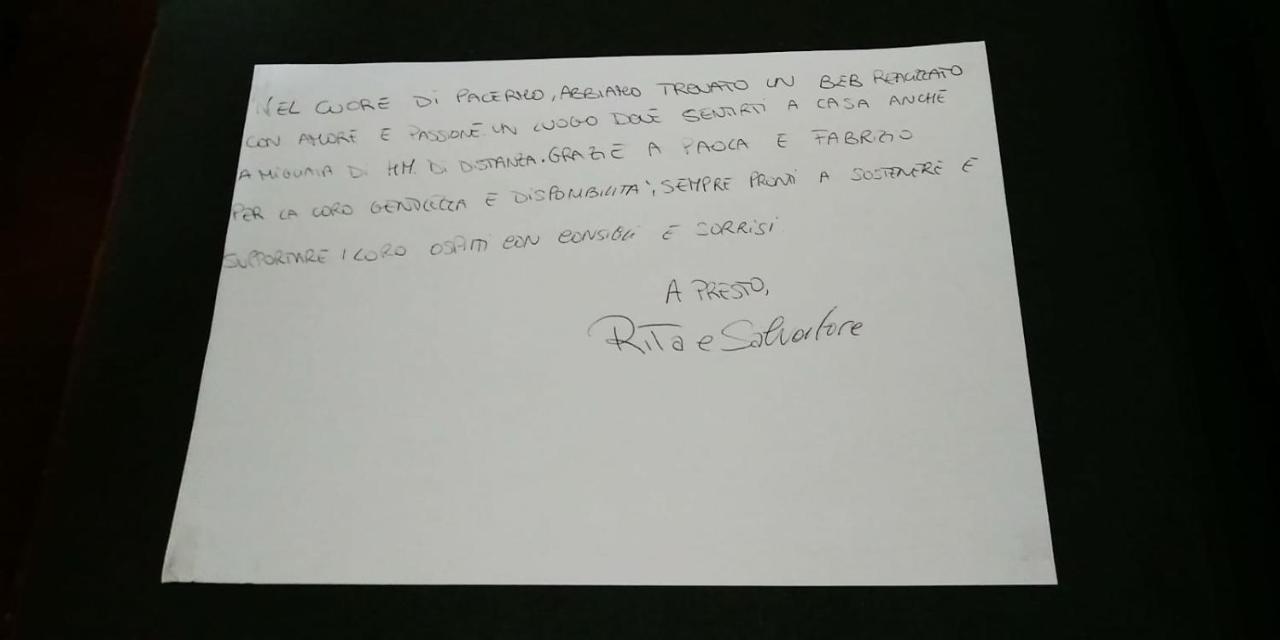 NEL CUORE DI PALERMO, ABBIAMO TROVATO UN BEB REALIZZATO
CON AMORE E PASSIONE. UN LUOGO DOVE SENTIRTI A CASA ANCHE
A MIGLIAIA DI KM. DI DISTANZA. GRAZIE A PAOLA E FABRIZIO
PER LA LORO GENTILEZZA E DISPONIBILITA', SEMPRE PRONTI A SOSTENERE E
SUPPORTARE I LORO OSPITI CON CONSIGLI E SORRISI
A PRESTO,
Rita e Salvatore